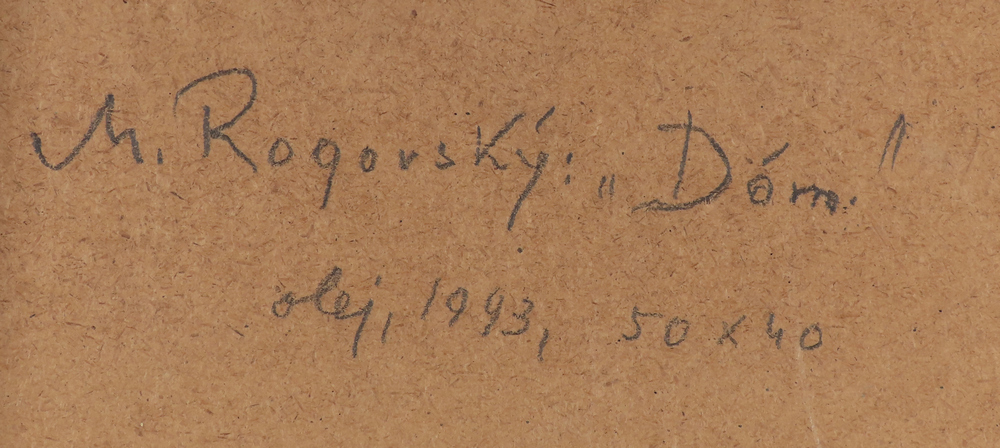 M. Rogovský: „Dóm."
olej, 1993, 50 x 40